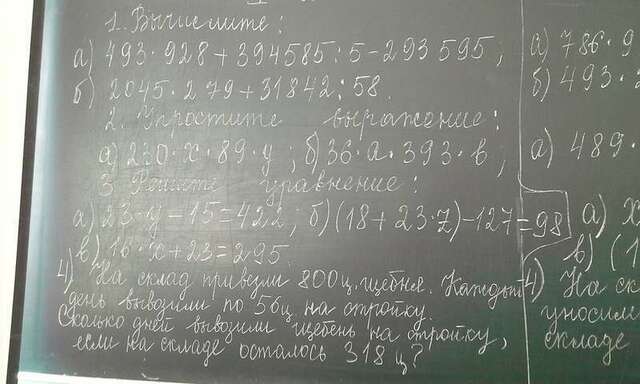 1. Вычислите:
а) 493·928+394585:5-293595;
б) 2045·279+31842:58.
2. Упростите выражение:
а) 230·х·89·у; б) 36·а·393·в;
3. Решите уравнение:
а) 23·у-15=422; б) (18+23·z)-127=98
в) 16·х+23=295.
4) На склад привезли 800 ц. щебня. Каждый
день вывозили по 56ц на стройку.
Сколько дней вывозили щебень на стройку,
если на складе осталось 318 ц?
а) 786·9
б) 493·
а) 489·
а) х
в) (1
4) На ск
уносили
складе